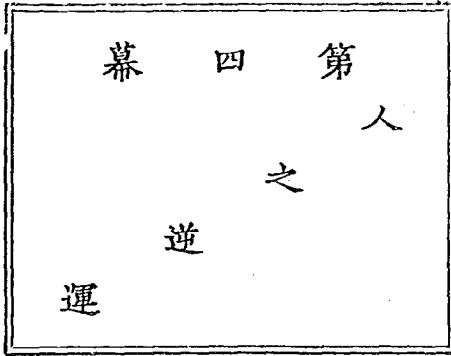 第四幕
人之逆運